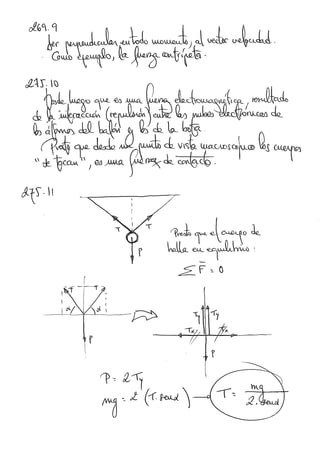 269.9
Ser perpendicular en todo momento, al vector velocidad.
Como ejemplo, la fuerza centrípeta.
275.10
Desde luego que es una fuerza electromagnética, resultado
de la interacción (repulsión) entre las nubes electrónicas de
los átomos del balón y los de la bota.
Puesto que desde un punto de vista macroscópico los cuerpos
"se tocan", es una fuerza de contacto.
275.11
T T
P
Puesto que el cuerpo de
halla en equilibrio:
Σ F = 0
T T
α α
P
Ty Ty
Tx Tx
P
P = 2 Ty
mg = 2 (T. senα) → T = mg / 2. senα